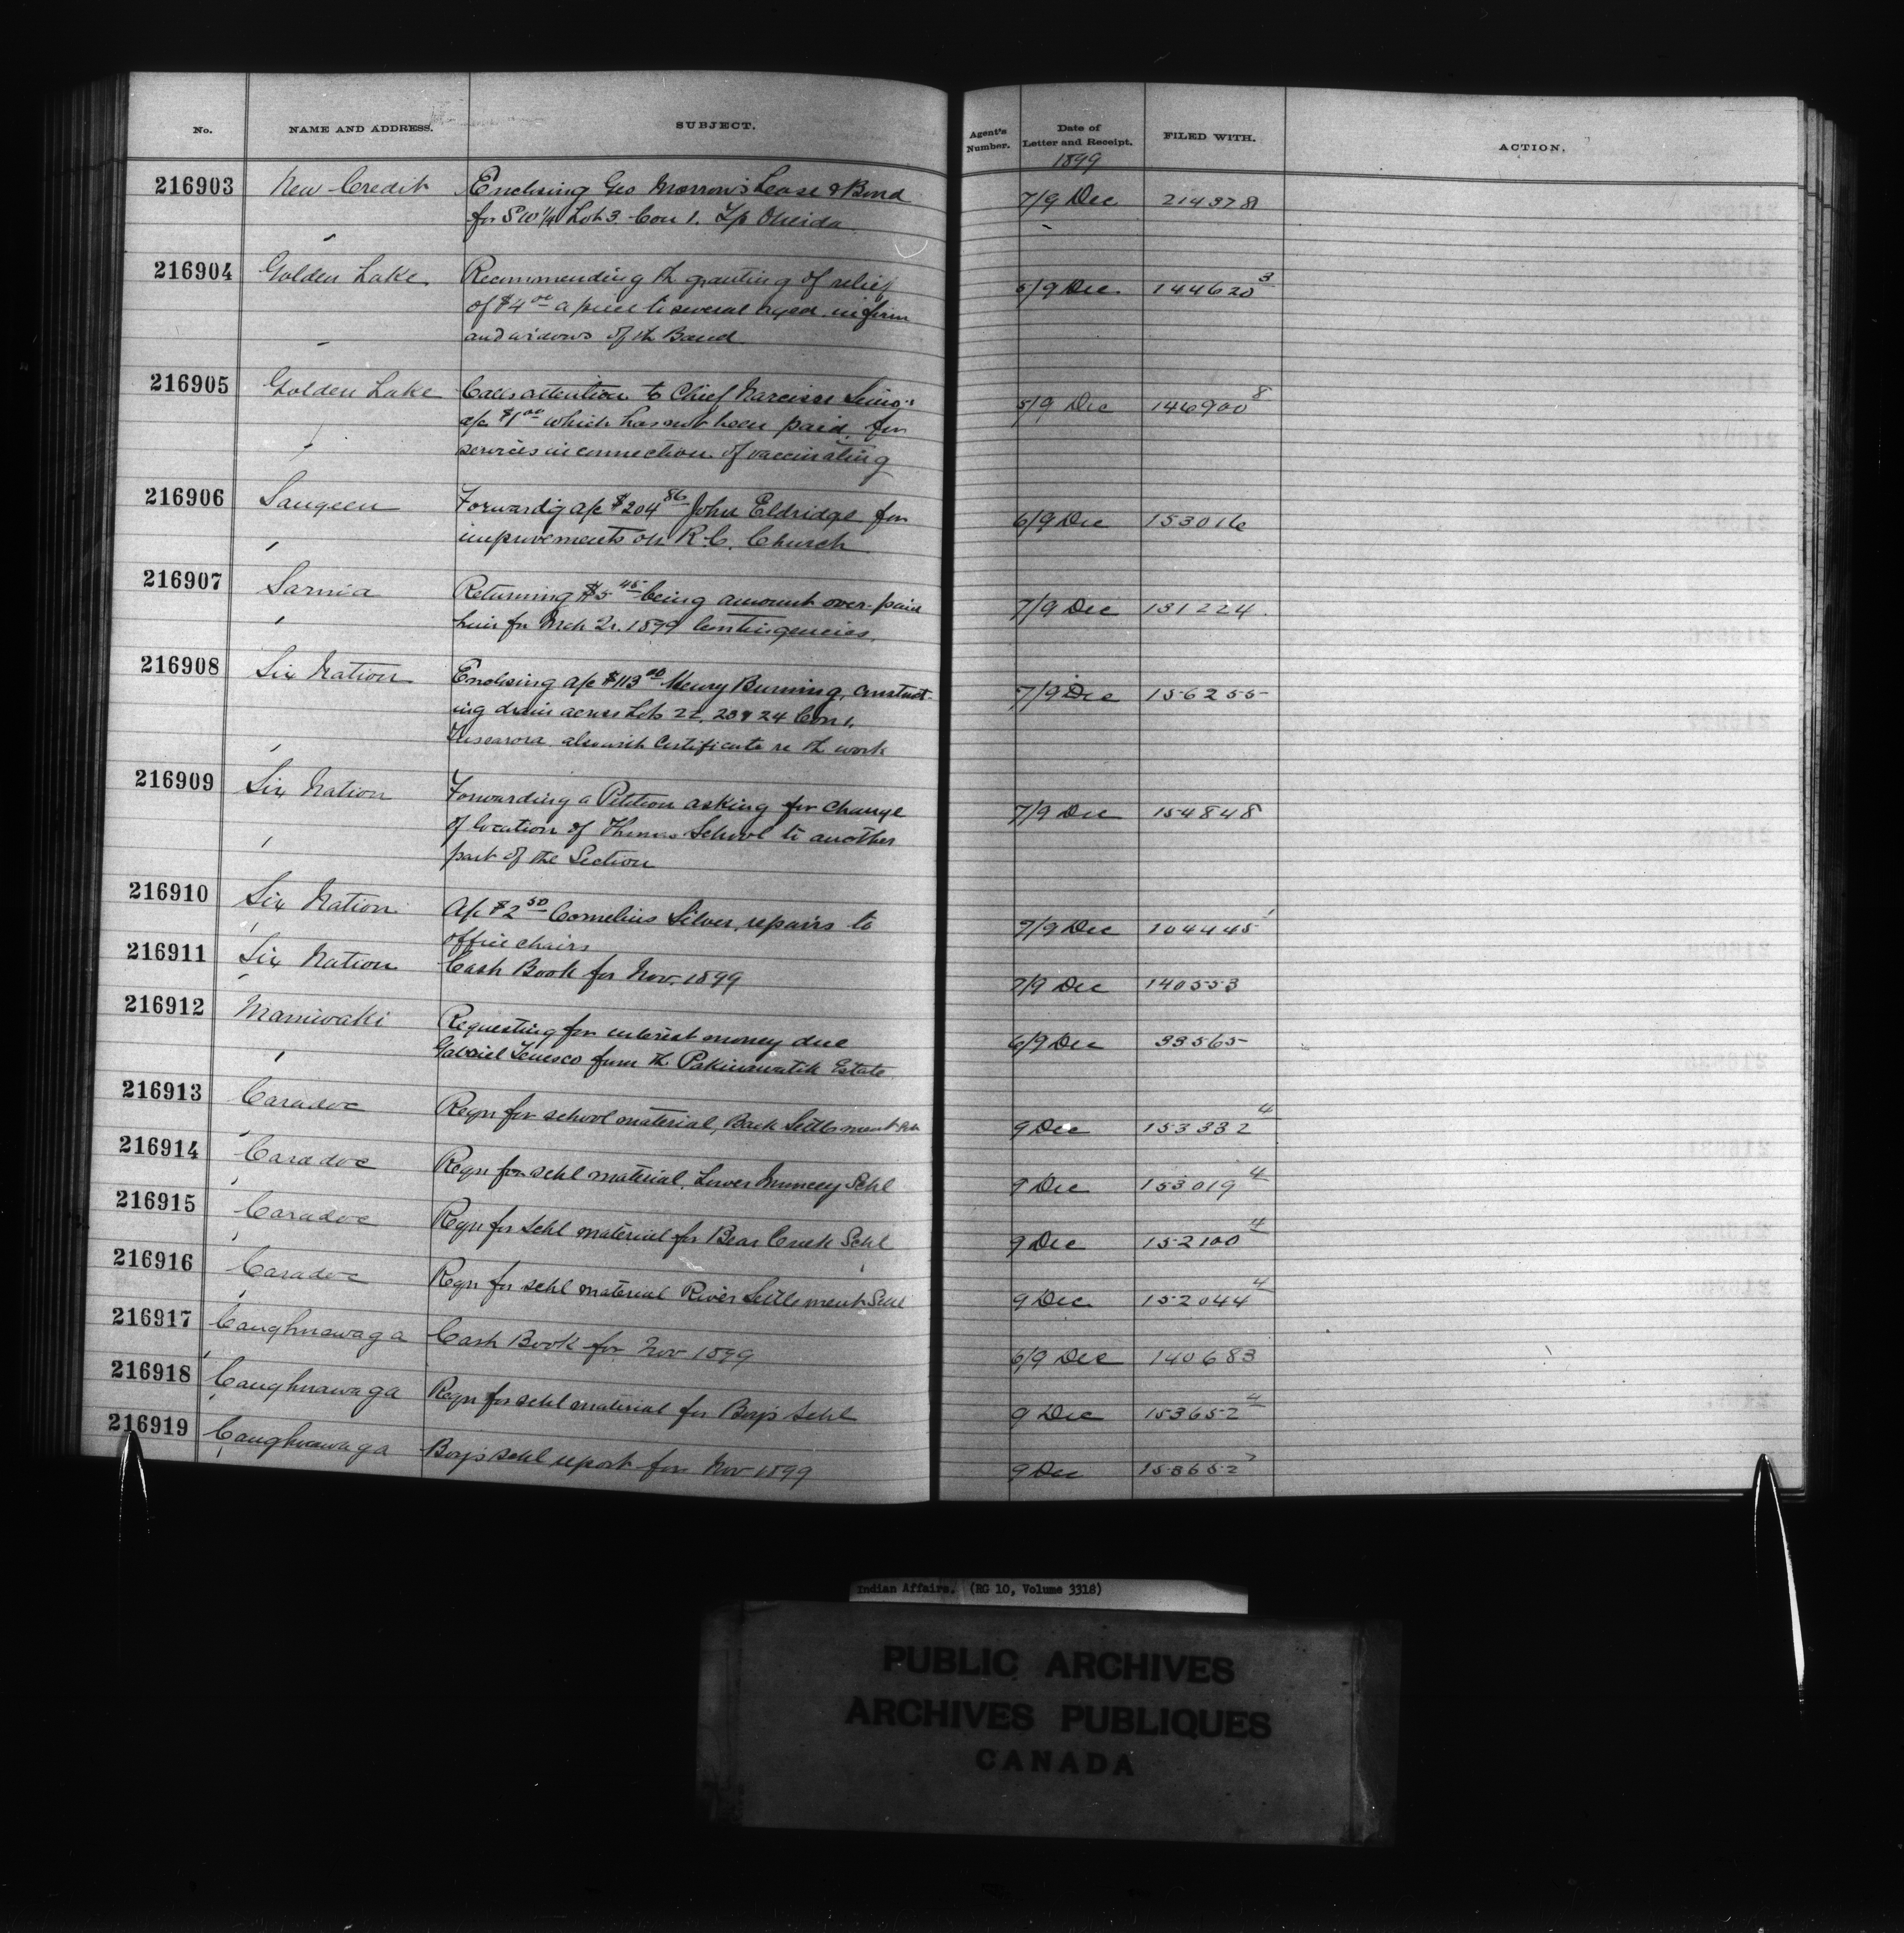 No. NAME AND ADDRESS. SUBJECT. Agent's Number. Date of Letter and Receipt. FILED WITH. ACTION.
1899
216903 New Credit Enclosing Geo Morrow's Lease & Bond 7/9 Dec 214378
for SW 1/4 Lot 3 Con 1. Tp Oneida
216904 Golden Lake Recommending th granting of relief 5/9 Dec 144620 3
of $4 00 a piece to several aged, infirm
and widows of th Band
216905 Golden Lake Calls attention to Chief Narcisse 5/9 Dec 146900 8
a/c $1 00 which has not been paid for
services in connection of vaccinating
216906 Saugeen Forwardig a/c $204 86 John Eldridge for 6/9 Dec 153016
improvements on R.C. Church
216907 Sarnia Returning $5 45 being amount over-paid 7/9 Dec 131224
him for Mch Qr. 1899 Contingencies
216908 Six Nation Enclosing a/c $113 00 Henry Burning, construct- 7/9 Dec 156255
ing drain across Lots 22, 23 & 24 Con 1.
Tuscarora also with Certificate re th work
216909 Six Nation Forwarding a Petition asking for change 7/9 Dec 154848
of location of Thomas School to another
part of the Section
216910 Six Nation A/c $2 50 Cornelius Silver, repairs to 7/9 Dec 104445 1
office chairs
216911 Six Nation Cash Book for Nov. 1899 7/9 Dec 140553
216912 Maniwaki Requesting for interest money due 6/9 Dec 33565
Gabriel Tenesco from th Pakinawatik Estate
216913 Caradoc Reqn for school material, Back Settlement 9 Dec 153332 4
216914 Caradoc Reqn for schl material, Lower Muncey Schl 9 Dec 153019 4
216915 Caradoc Reqn for schl material for Bear Creek Schl 9 Dec 152100 4
216916 Caradoc Reqn for schl material River Settlement Schl 9 Dec. 152044 4
216917 Caughnawaga Cash Book for Nov 1899 6/9 Dec 140683
216918 Caughnawaga Reqn for schl material for Boy's Schl 9 Dec 153652 4
216919 Caughnawaga Boy's schl report for Nov 1899 9 Dec 153652 7
Indian Affairs. (RG 10, Volume 3318)
PUBLIC ARCHIVES
ARCHIVES PUBLIQUES
CANADA